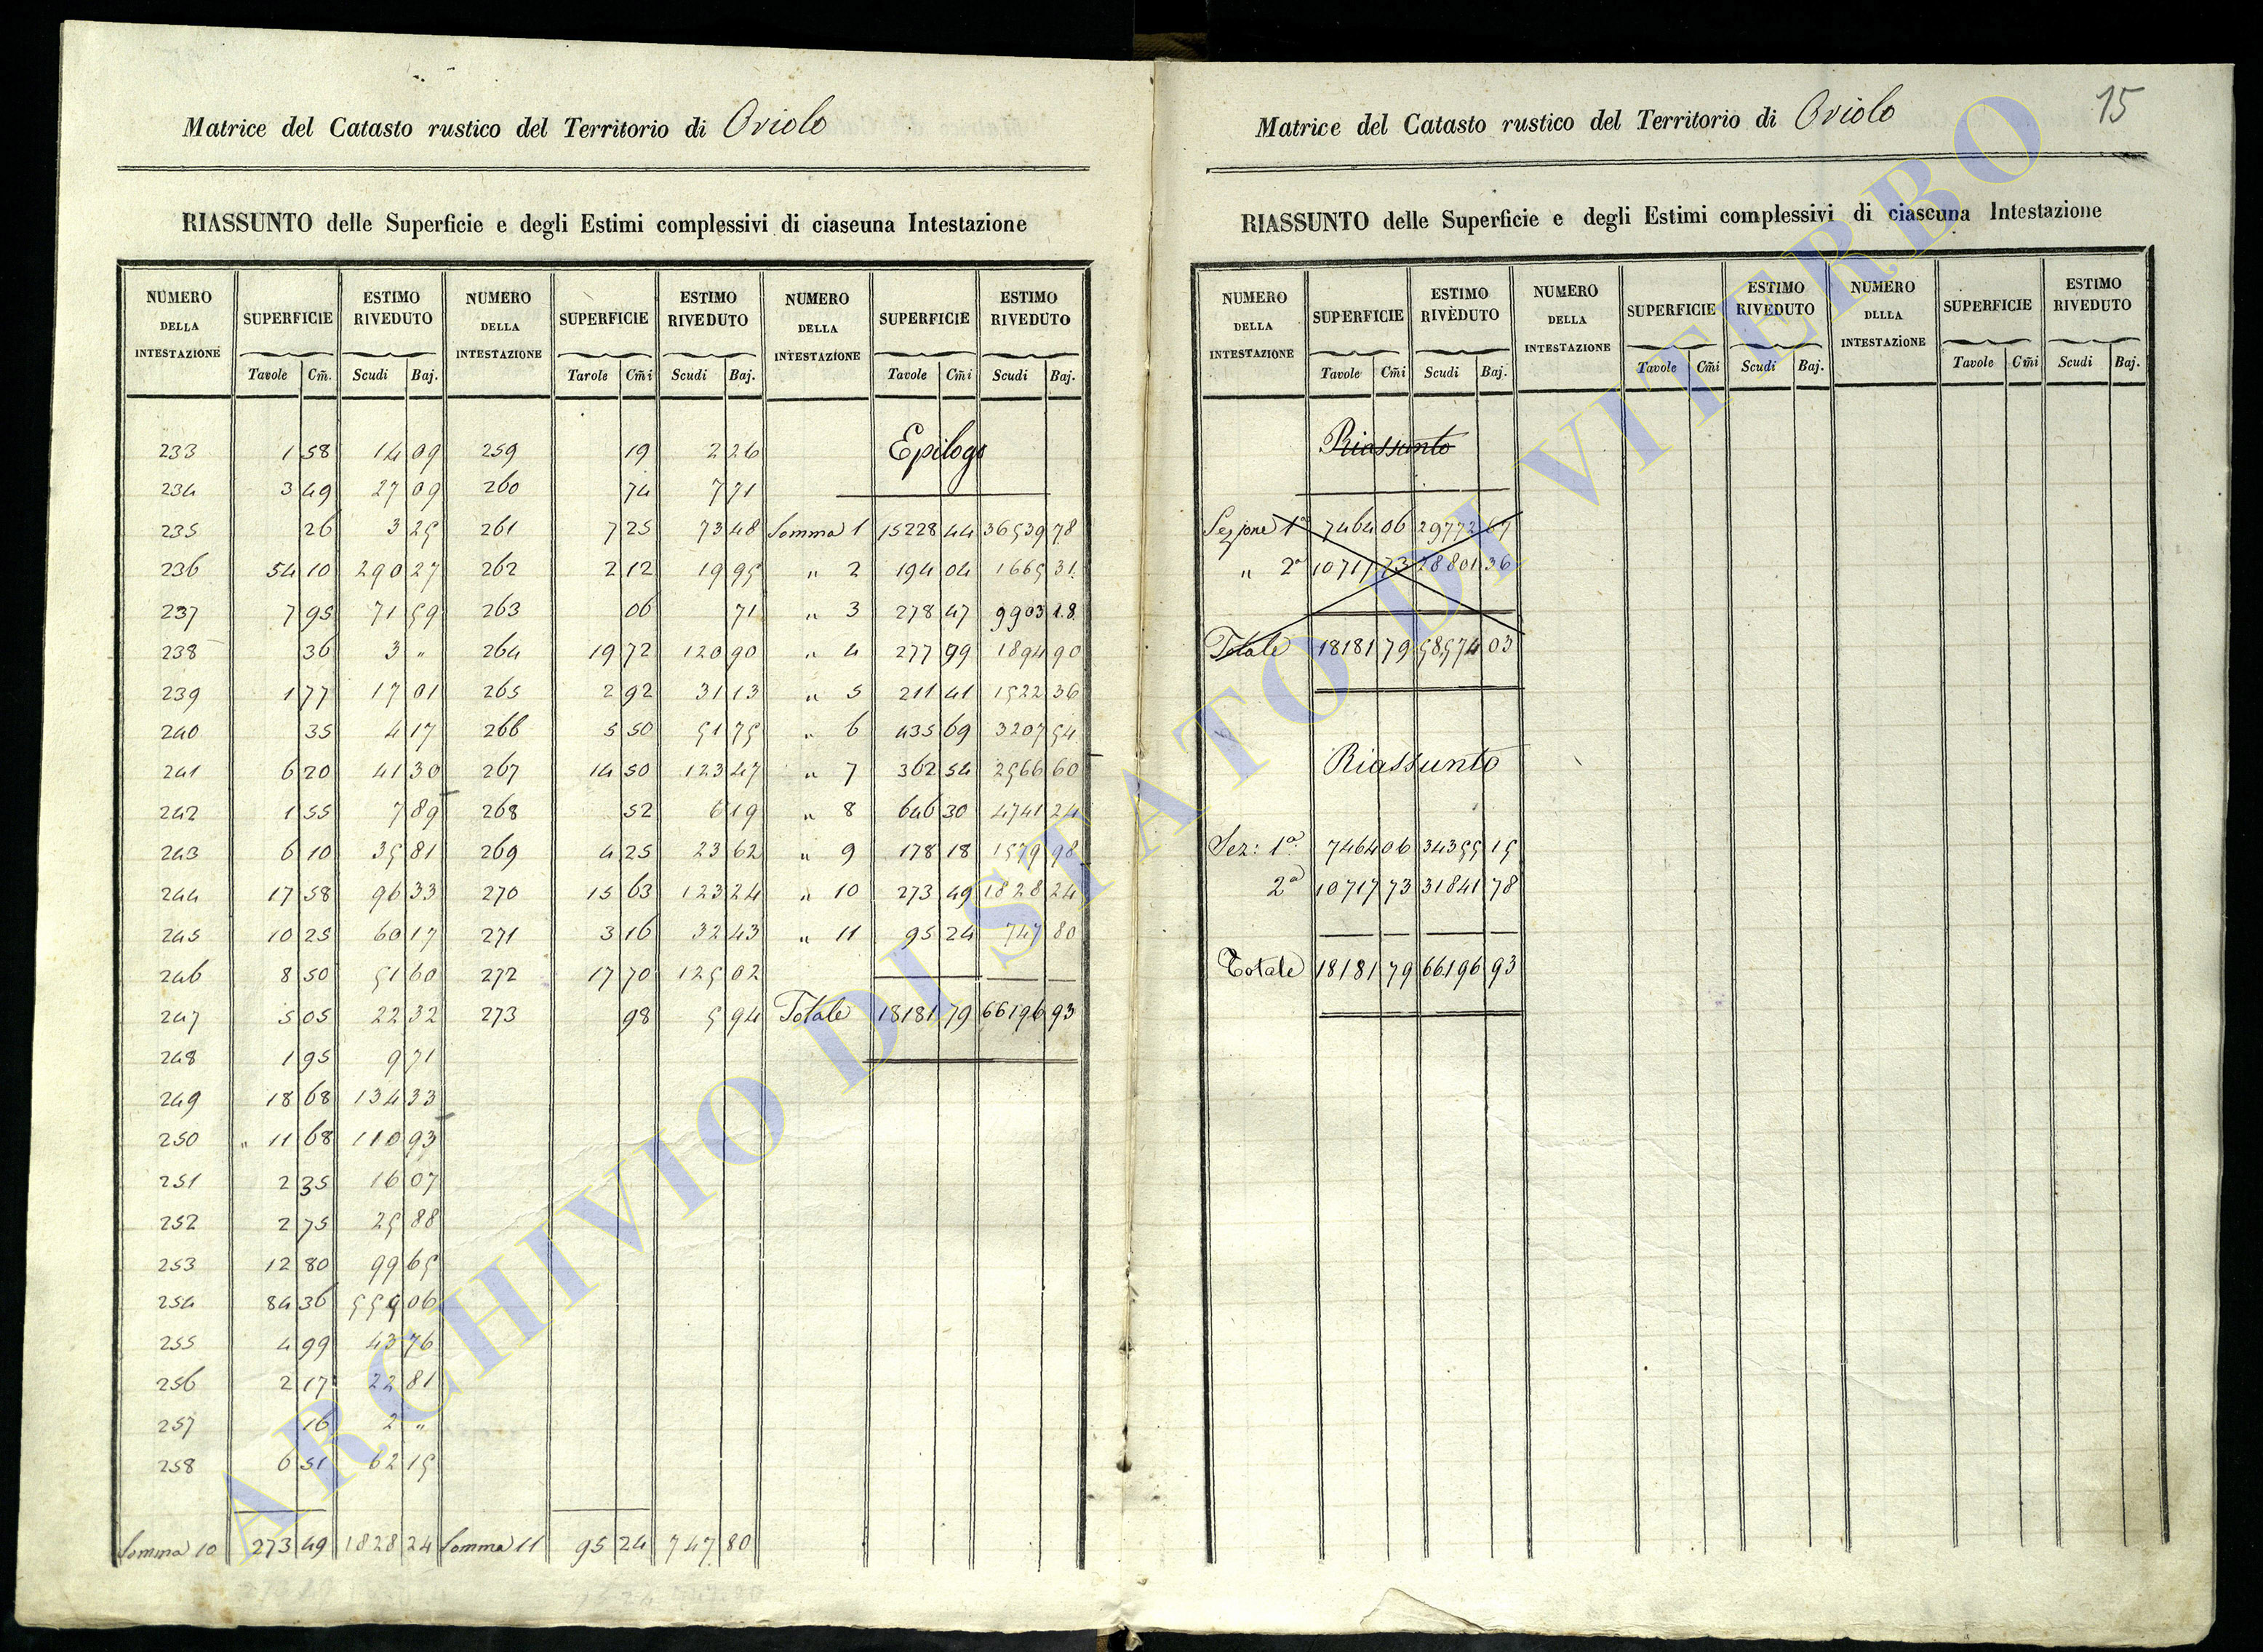 Matrice del Catasto rustico del Territorio di Oriolo
RIASSUNTO delle Superficie e degli Estimi complessivi di ciascuna Intestazione
NUMERO DELLA INTESTAZIONE SUPERFICIE ESTIMO RIVEDUTO NUMERO DELLA INTESTAZIONE SUPERFICIE ESTIMO RIVEDUTO NUMERO DELLA INTESTAZIONE SUPERFICIE ESTIMO RIVEDUTO
Tavole Cm̃. Scudi Baj. Tavole Cm̃i Scudi Baj. Tavole Cm̃i Scudi Baj.
233 1 58 14 09 259 19 2 26 Epilogo
234 3 49 27 09 260 74 7 71
235 26 3 25 261 7 25 73 48 Somma 1 15228 44 36539 78
236 54 10 290 27 262 2 12 19 95 " 2 194 04 1665 31
237 7 95 71 59 263 06 71 " 3 278 47 9903 18
238 36 3 " 264 19 72 120 90 " 4 277 99 1894 90
239 1 77 17 01 265 2 92 31 13 " 5 211 41 1522 36
240 35 4 17 266 5 50 51 75 " 6 435 69 3207 54
241 6 20 41 30 267 14 50 123 47 " 7 362 54 2566 60
242 1 55 7 89 268 52 6 19 " 8 646 30 4741 24
243 6 10 35 81 269 4 25 23 62 " 9 178 18 1579 98
244 17 58 96 33 270 15 63 123 24 " 10 273 49 1828 24
245 10 25 60 17 271 3 16 32 43 " 11 95 24 747 80
246 8 50 51 60 272 17 70 125 02
247 5 05 22 32 273 98 5 94 Totale 18181 79 66196 93
248 1 95 9 71
249 18 68 134 33
250 " 11 68 110 93
251 2 35 16 07
252 2 75 25 88
253 12 80 99 65
254 84 36 559 06
255 4 99 43 76
256 2 17 22 81
257 16 2 "
258 6 51 62 15
Somma 10 273 49 1828 24 Somma 11 95 24 747 80
15
Matrice del Catasto rustico del Territorio di Oriolo
RIASSUNTO delle Superficie e degli Estimi complessivi di ciascuna Intestazione
NUMERO DELLA INTESTAZIONE SUPERFICIE ESTIMO RIVEDUTO NUMERO DELLA INTESTAZIONE SUPERFICIE ESTIMO RIVEDUTO NUMERO DLLLA INTESTAZIONE SUPERFICIE ESTIMO RIVEDUTO
Tavole Cm̃i Scudi Baj. Tavole Cm̃i Scudi Baj. Tavole Cm̃i Scudi Baj.
Riassunto
Sezione 1a 7464 06 29772 67
" 2a 10717 73 28801 36
Totale 18181 79 58574 03
Riassunto
Sez: 1a 7464 06 34355 15
2a 10717 73 31841 78
Totale 18181 79 66196 93
ARCHIVIO DI STATO DI VITERBO